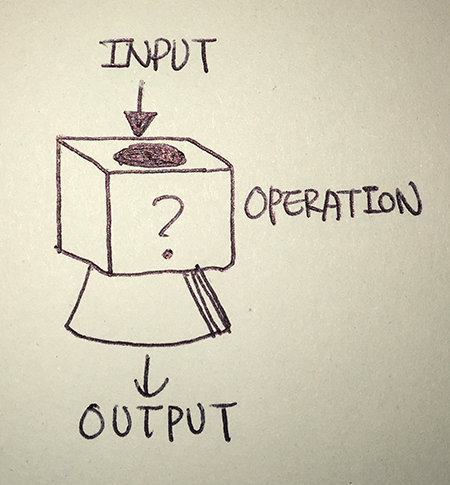 INPUT
?
OPERATION
OUTPUT